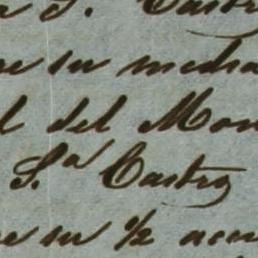 S. Castro
su media
del Mon
S.ª Castro
su ½ accu